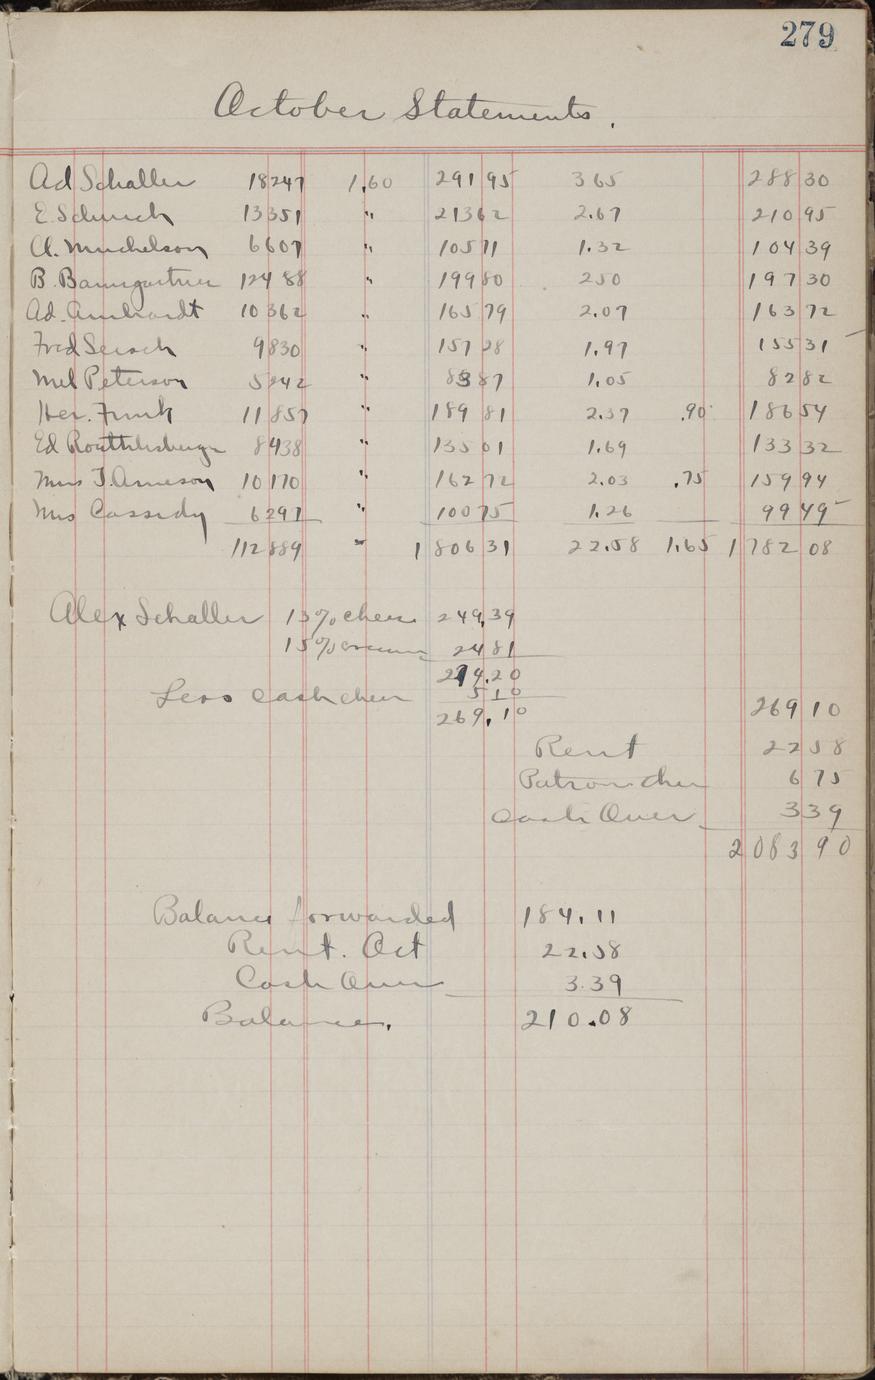 279
October Statements.
Ad Schaller 18247 1.60 291 95 3 65 288 30
E. Schurch 13351 " 213 62 2.67 210 95
A. Muchelson 6607 " 105 71 1.32 104 39
B. Baumgartner 12488 " 199 80 2 50 197 30
Ad. Amhardt 10362 " 165 79 2.07 163 72
Fred Sersch 9830 " 157 28 1.97 155 31
Mel Peterson 5242 " 83 87 1.05 82 82
Her. Funk 11857 " 189 81 2.37 .90 186 54
Ed 8438 " 135 01 1.69 133 32
Mrs T. Arneson 10170 " 162 72 2.03 .75 159 94
Mrs Cassidy 6297 " 100 75 1.26 99 49
112889 " 1 806 31 22.58 1.65 1 782 08
Alex Schaller 13% chees 249.39
15% cream 24 81
274.20
Less cash chees 5 10
269.10 269 10
Rent 22 58
Patron chees 6 75
Cash Over 3 39
2 083 90
Balance forwarded 184.11
Rent. Oct 22.58
Cash Over 3.39
Balance. 210.08